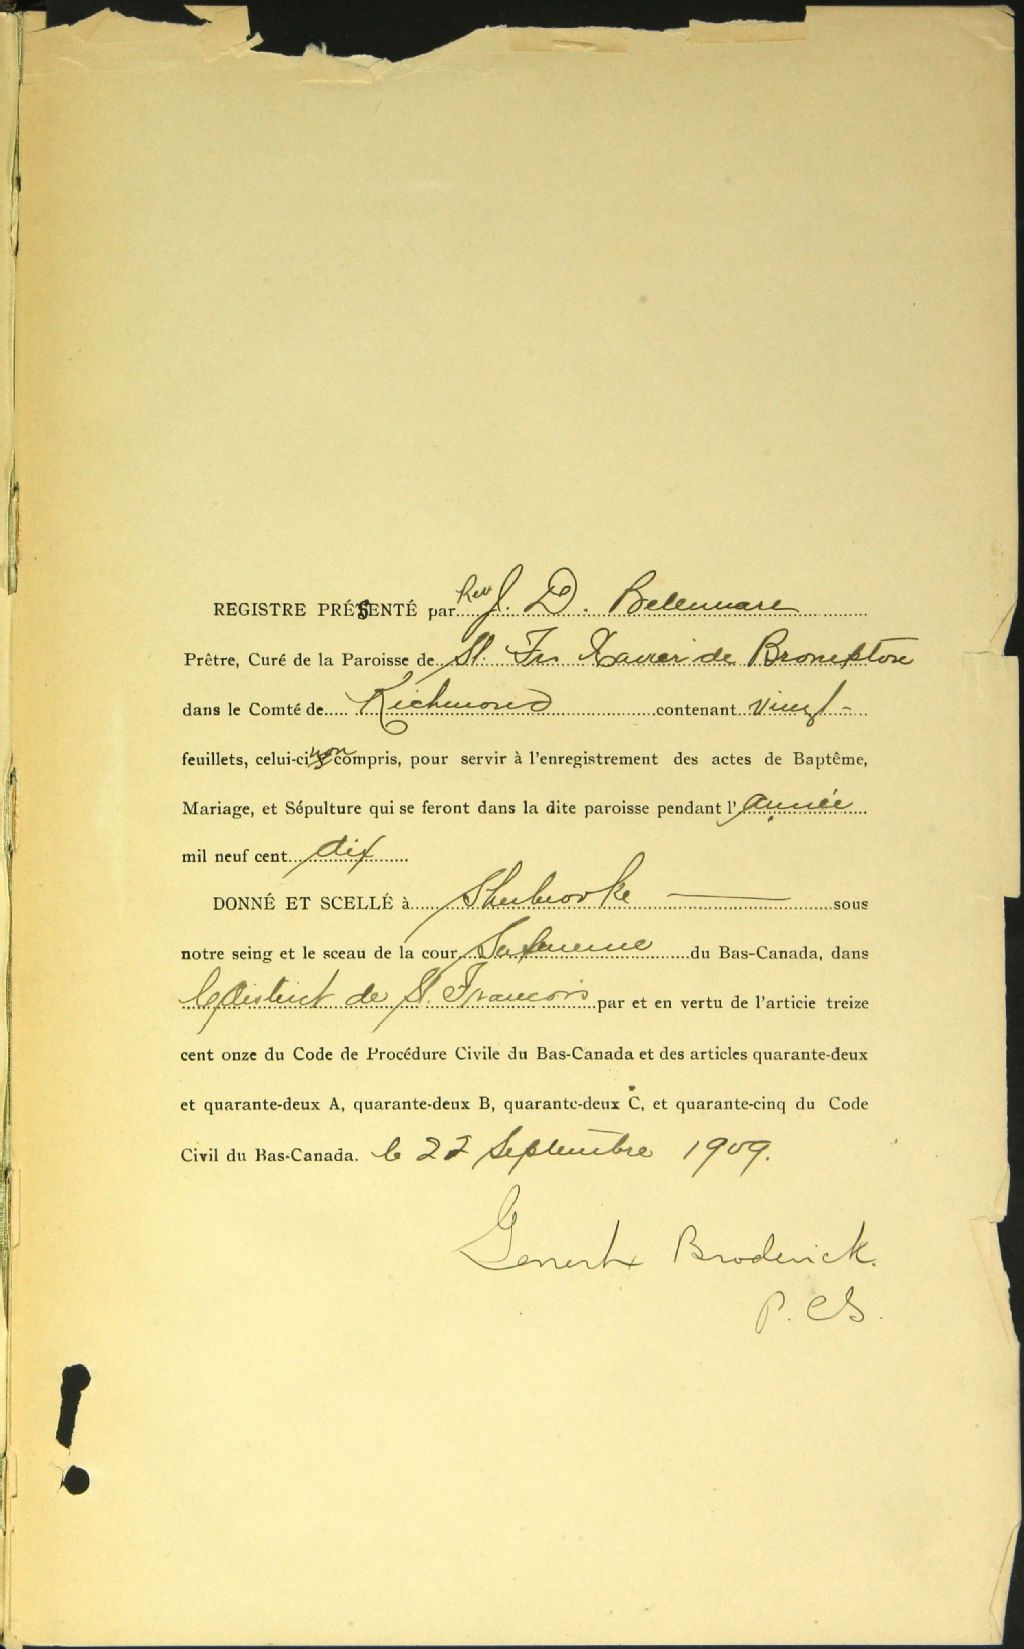 REGISTRE PRÉSENTÉ par Rev J. D. Bellemare
Prêtre, Curé de la Paroisse de St. Frs Xavier de Brompton
dans le Comté de Richmond contenant vingt -
feuillets, celui-ci non compris, pour servir à l'enregistrement des actes de Baptême,
Mariage, et Sépulture qui se feront dans la dite paroisse pendant l'année
mil neuf cent dix
DONNÉ ET SCELLÉ à Sherbrooke — sous
notre seing et le sceau de la cour Supérieure du Bas-Canada, dans
le district de St. François par et en vertu de l'articie treize
cent onze du Code de Procédure Civile du Bas-Canada et des articles quarante-deux
et quarante-deux A, quarante-deux B, quarante-deux C, et quarante-cinq du Code
Civil du Bas-Canada. le 22 Septembre 1909.
Broderick.
P. C.S.